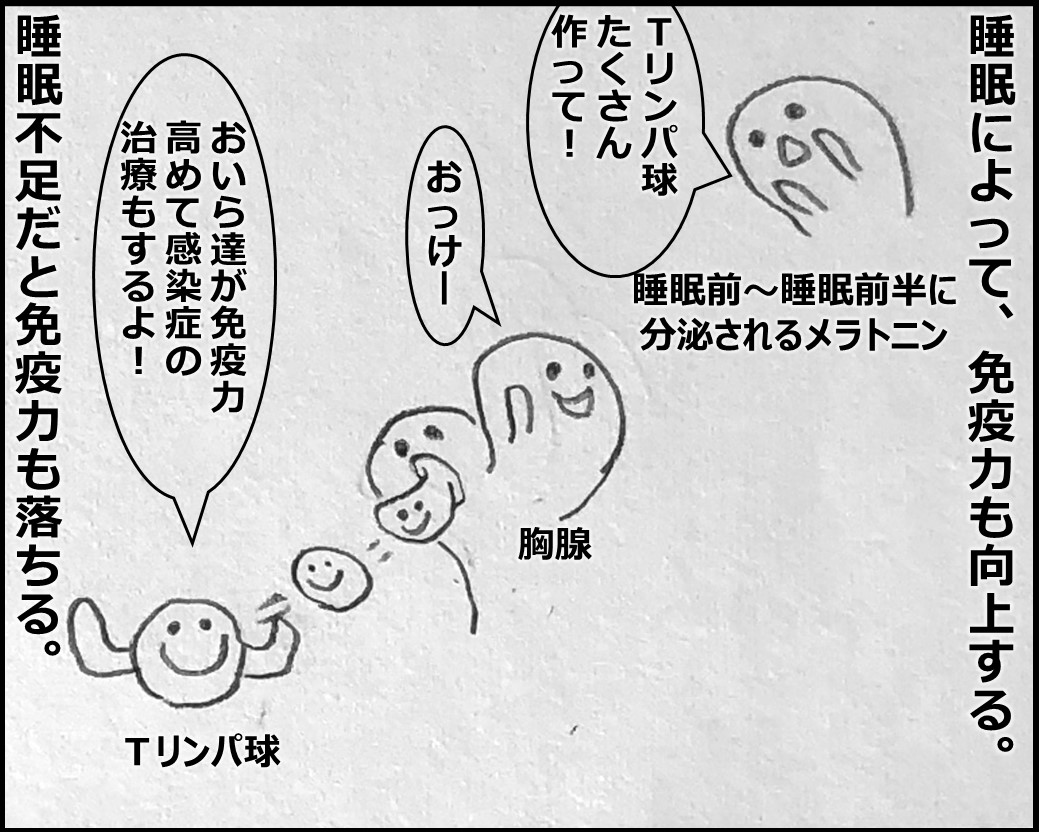 睡眠によって、免疫力も向上する。
Ｔリンパ球
たくさん
作って！
睡眠前～睡眠前半に
分泌されるメラトニン
おっけー
胸腺
おいら達が免疫力
高めて感染症の
治療もするよ！
Ｔリンパ球
睡眠不足だと免疫力も落ちる。